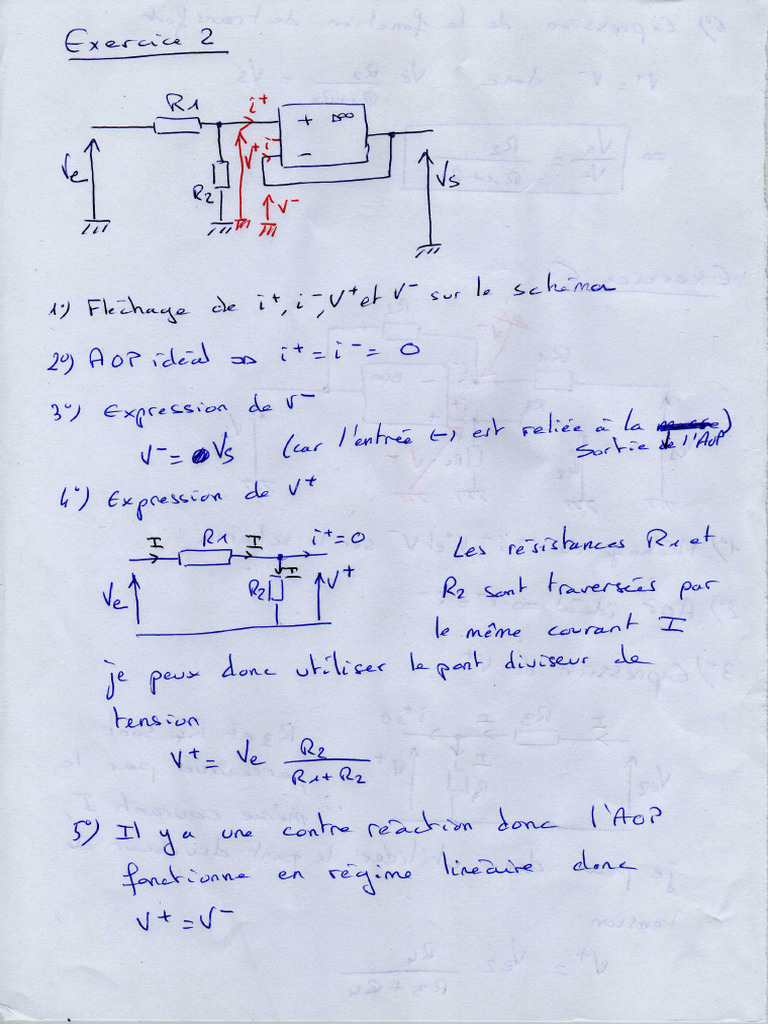 Exercice 2
R1
i+
+ ▷∞
Ve
V+
i-
-
R2
V-
Vs
1°) Fléchage de i+, i-, V+ et V- sur le schéma
2°) AOP idéal => i+ = i- = 0
3°) Expression de V-
V- = Vs (car l'entrée (-) est reliée à la sortie de l'AOP)
4°) Expression de V+
I R1 I i+=0
Ve R2 I V+
Les résistances R1 et
R2 sont traversées par
le même courant I
je peux donc utiliser le pont diviseur de
tension
V+ = Ve R2
R1+R2
5°) Il y a une contre réaction donc l'AOP
fonctionne en régime linéaire donc
V+ = V-